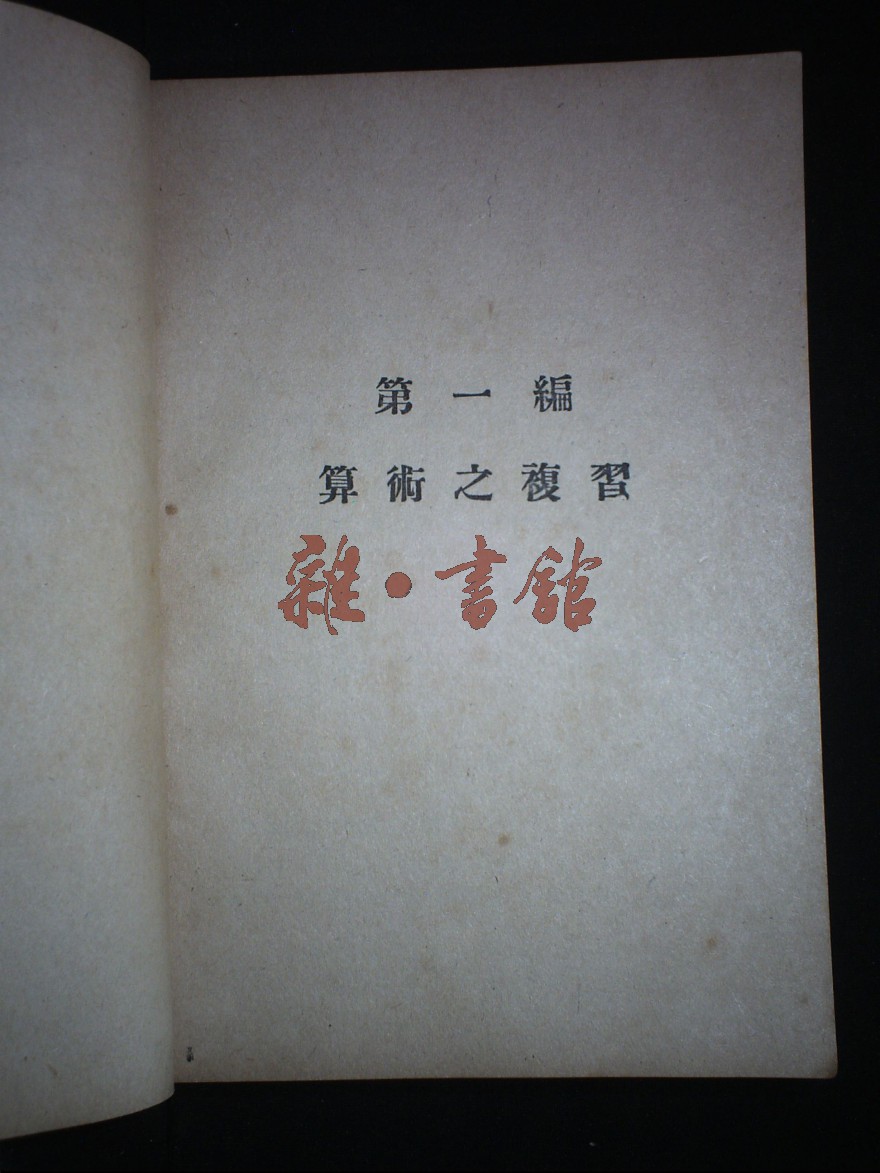 第一編
算術之複習
雜·書館